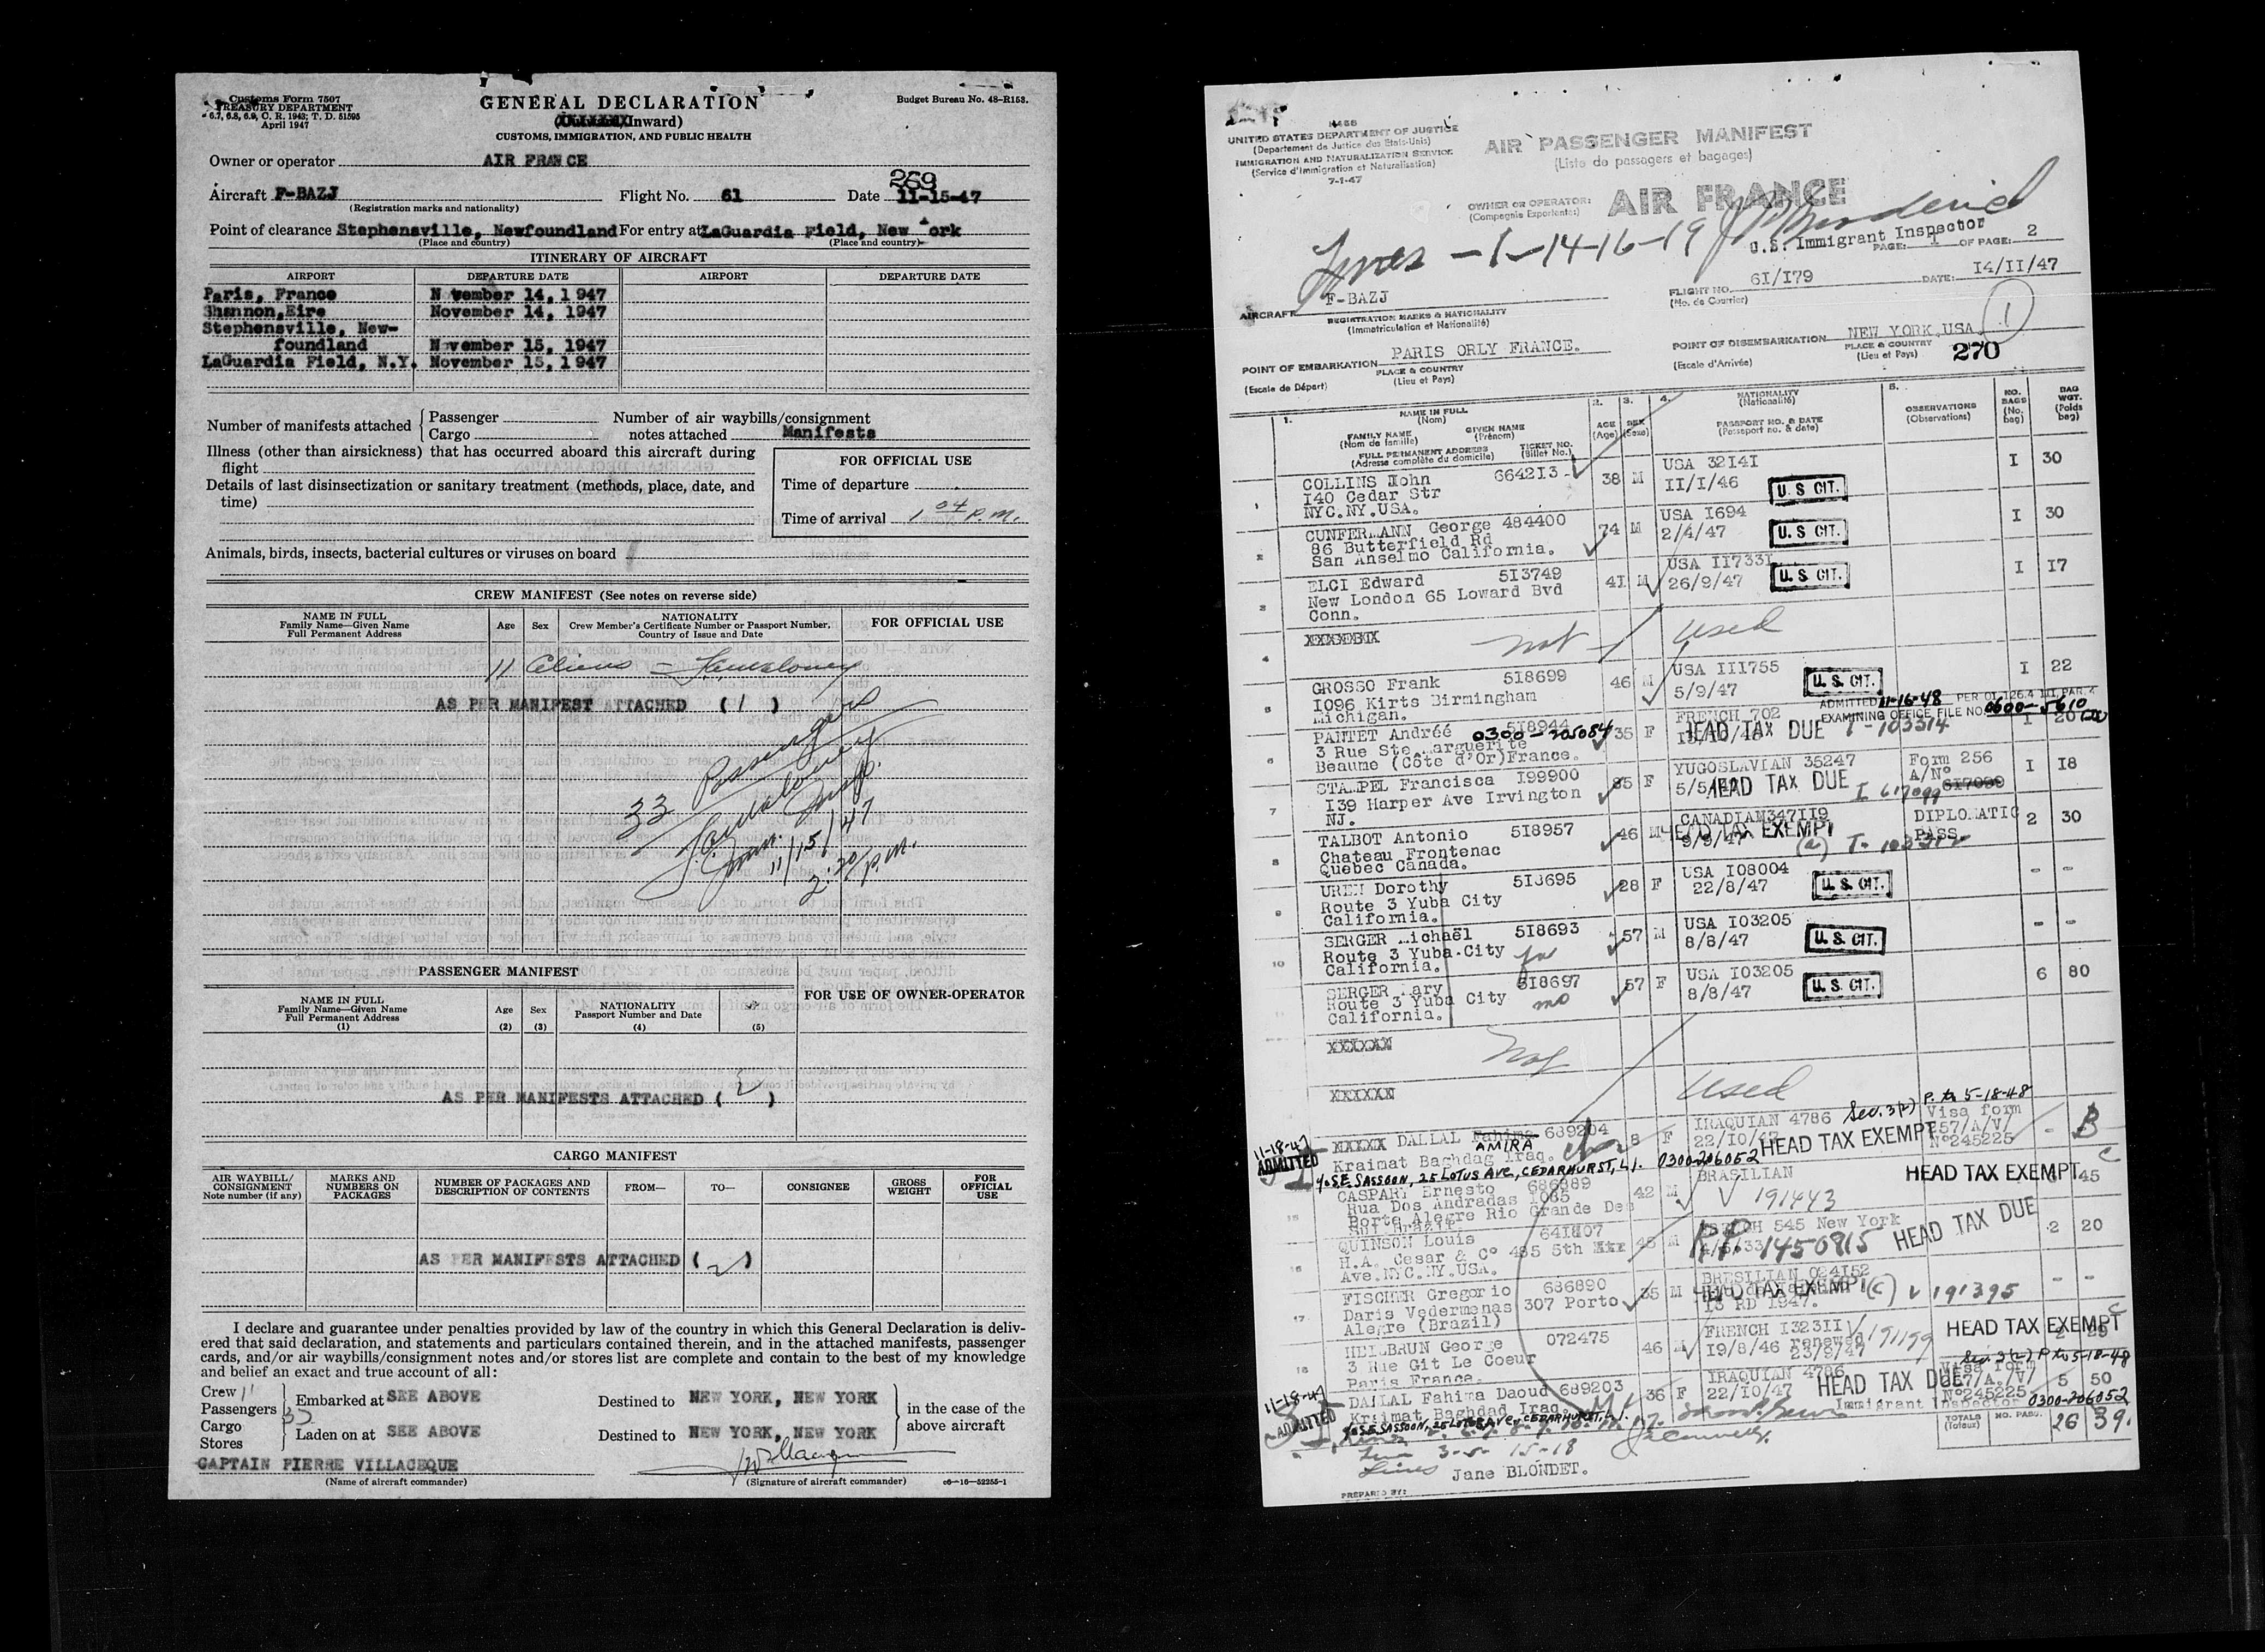 Customs Form 7507
TREASURY DEPARTMENT
6.7, 6.8, 6.9, C. R. 1943; T. D. 51595
April 1947
GENERAL DECLARATION
Inward)
CUSTOMS, IMMIGRATION, AND PUBLIC HEALTH
Budget Bureau No. 48-R153.
Owner or operator AIR FRANCE
269
Aircraft F-BAZJ Flight No. 61 Date 11-15-47
(Registration marks and nationality)
Point of clearance Stephensville, Newfoundland For entry at LaGuardia Field, New ork
(Place and country) (Place and country)
ITINERARY OF AIRCRAFT
AIRPORT DEPARTURE DATE AIRPORT DEPARTURE DATE
Paris, France November 14, 1947
Shannon, Eire November 14, 1947
Stephensville, New-
foundland November 15, 1947
LaGuardia Field, N.Y. November 15, 1947
Number of manifests attached Passenger Number of air waybills/consignment
Cargo notes attached Manifests
Illness (other than airsickness) that has occurred aboard this aircraft during
flight
Details of last disinsectization or sanitary treatment (methods, place, date, and
time)
FOR OFFICIAL USE
Time of departure
Time of arrival 1 04 P.M.
Animals, birds, insects, bacterial cultures or viruses on board
CREW MANIFEST (See notes on reverse side)
NAME IN FULL
Family Name—Given Name
Full Permanent Address
Age Sex
NATIONALITY
Crew Member's Certificate Number or Passport Number,
Country of Issue and Date
FOR OFFICIAL USE
11 Aliens –
AS PER MANIFEST ATTACHED ( 1 )
33 Passengers
11/15/47
2:20 p.m.
PASSENGER MANIFEST
NAME IN FULL
Family Name—Given Name
Full Permanent Address
(1)
Age
(2)
Sex
(3)
NATIONALITY
Passport Number and Date
(4)
(5)
FOR USE OF OWNER-OPERATOR
AS PER MANIFESTS ATTACHED ( 2 )
CARGO MANIFEST
AIR WAYBILL/
CONSIGNMENT
Note number (if any)
MARKS AND
NUMBERS ON
PACKAGES
NUMBER OF PACKAGES AND
DESCRIPTION OF CONTENTS
FROM— TO— CONSIGNEE
GROSS
WEIGHT
FOR
OFFICIAL
USE
AS PER MANIFESTS ATTACHED ( 2 )
I declare and guarantee under penalties provided by law of the country in which this General Declaration is deliv-
ered that said declaration, and statements and particulars contained therein, and in the attached manifests, passenger
cards, and/or air waybills/consignment notes and/or stores list are complete and contain to the best of my knowledge
and belief an exact and true account of all:
Crew 11
Passengers 33
Cargo
Stores
Embarked at SEE ABOVE Destined to NEW YORK, NEW YORK
Laden on at SEE ABOVE Destined to NEW YORK, NEW YORK
in the case of the
above aircraft
CAPTAIN PIERRE VILLACEQUE
(Name of aircraft commander) (Signature of aircraft commander) c6—16—52255-1
I466
UNITED STATES DEPARTMENT OF JUSTICE
(Departement de Justice des Etats-Unis)
IMMIGRATION AND NATURALIZATION SERVICE
(Service d'Immigration et Naturalisation)
7-1-47
AIR PASSENGER MANIFEST
(Liste de passagers et bagages)
OWNER OR OPERATOR:
(Compagnie Exportente:)
AIR FRANCE
Lines - 1-14-16-19
U.S. Immigrant Inspector
PAGE: 1 OF PAGE: 2
AIRCRAFT F-BAZJ
REGISTRATION MARKS & NATIONALITY
(Immatriculation et Nationalité)
FLIGHT NO. 6I/I79
(No. de Courrier)
DATE: I4/II/47
POINT OF EMBARKATION PARIS ORLY FRANCE.
(Escale de Départ)
PLACE & COUNTRY
(Lieu et Pays)
POINT OF DISEMBARKATION NEW YORK.USA. 1
(Escale d'Arrivée)
PLACE & COUNTRY
(Lieu et Pays)
270
1. NAME IN FULL
(Nom)
FAMILY NAME GIVEN NAME
(Nom de famille) (Prénom)
FULL PERMANENT ADDRESS TICKET NO.
(Adresse complète du domicile) (Billet No.)
2. AGE (Age)
3. SEX (Sexe)
4. NATIONALITY
(Nationalité)
PASSPORT NO. & DATE
(Passeport no. & date)
5. OBSERVATIONS
(Observations)
NO. BAGS (No. bag)
BAG WGT. (Poids bag)
1 COLLINS John 6642I3 38 M USA 32I4I I 30
I40 Cedar Str II/I/46 U.S CIT.
NYC.NY.USA.
2 CUNFERMANN George 484400 74 M USA I694 I 30
86 Butterfield Rd 2/4/47 U.S CIT.
San Anselmo California.
3 ELCI Edward 5I3749 41 M USA II733I I I7
New London 65 Loward Bvd 26/9/47 U.S CIT.
Conn.
4 not used
5 GROSSO Frank 5I8699 46 M USA III755 I 22
I096 Kirts Birmingham 5/9/47 U.S. CIT.
Michigan.
ADMITTED 11-16-48 PER OI 126.4 III PAR. 4
EXAMINING OFFICE FILE NO. 0600-5610
6 PANTET Andréé 5I8944 35 F FRENCH 702 I 20
3 Rue Ste Marguerite 0300-205084 HEAD TAX DUE 1-103314
Beaume (Côte d'Or)France.
7 STAMPEL Francisca I99900 85 F YUGOSLAVIAN 35247 Form 256 I I8
I39 Harper Ave Irvington HEAD TAX DUE A/N° 6I7099
NJ. I 617099
8 TALBOT Antonio 5I8957 46 M CANADIAN347II9 DIPLOMATIC 2 30
Chateau Frontenac 9/9/47 HEAD TAX EXEMPT PASS.
Quebec Canada. (a)
9 UREN Dorothy 5I3695 28 F USA I08004 - -
Route 3 Yuba City 22/8/47 U.S. CIT.
California.
10 SERGER Michaël 5I8693 57 M USA I03205 - -
Route 3 Yuba City fa 8/8/47 U.S. CIT.
California.
SERGER Mary 5I8697 57 F USA I03205 6 80
Route 3 Yuba City mo 8/8/47 U.S. CIT.
California.
Not
Used
Sec. 3(2) P. to 5-18-48
11-18-47 DALLAL Fahima 689204 8 F IRAQUIAN 4786 Visa form - B
ADMITTED AMIRA 22/10/47 HEAD TAX EXEMPT 257/A/V/
Kraimat Baghdag Iraq. N°245225
% S.E. SASSOON, 25 LOTUS AVE, CEDARHURST, L.I. 0300-206052
15 CASPARY Ernesto 686889 42 M BRASILIAN HEAD TAX EXEMPT C 45
Rua Dos Andradas I085 V 191443
Porte Alegre Rio Grande De
Sul Brazil
16 QUINSON Louis 641807 45 M 545 New York 2 20
H.A. Cesar & C° 485 5th 1450815 HEAD TAX DUE
Ave.NYC.NY.USA.
17 FISCHER Gregorio 686890 35 M BRESILIAN - -
Daris Vedermenas 307 Porto HEAD TAX EXEMPT (C) V 191395
Alegre (Brazil) I3 RD I947.
18 HEILBRUN George 072475 46 M FRENCH I323II HEAD TAX EXEMPT C
3 Rue Git Le Coeur I9/8/46 renewed 23/9/47
Paris France.
Sec. 3(2) P to 5-18-48
11-18-47 DALLAL Fahima Daoud 689203 36 F IRAQUIAN 4786 Visa form 5 50
ADMITTED Kraimat Baghdad Iraq. 22/IO/47 HEAD TAX DUE 257/A./V/
N°245225
% S.E. SASSOON, 25 LOTUS AVE, CEDARHURST, L.I. Immigrant Inspector 0300-206052
TOTALS
(Totaux)
NO. PASS. 26 39.
Lines 3-5- 15-18
Jane BLONDET.
PREPARED BY: